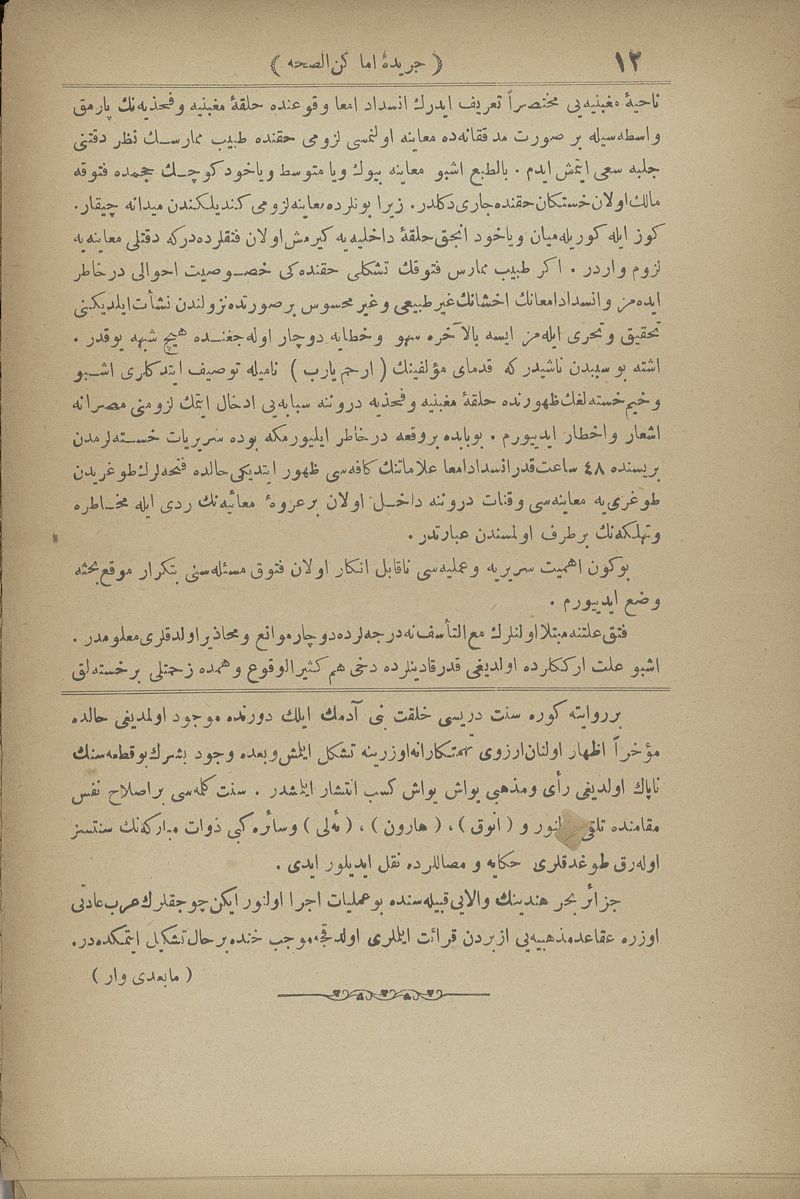 ١٢
( جريدۀ اماكن الصحه )
ناحيۀ مغبنيه‌يى مختصراً تعريف ايدرك انسداد امعا وقوعنده حلقۀ مغبنيه و فخذيه‌نك پارمق
واسطه‌سيله بر صورت مدققانه‌ده معاينه اولنمسى لزومى حقنده طبيب ممارسك نظر دقتنى
جلبه سعى ايتمش ايدم . بالطبع اشبو معاينه بيوك ويا متوسط وياخود كوچك حجمده فتوقه
مالك اولان خستكان حقنده جارى دكلدر. زيرا بونلرده معاينه لزومى كنديلكندن ميدانه چيقار.
كوز ايله كوريله‌ميان وياخود انجق حلقۀ داخليه‌يه كيرمش اولان فتقلرده‌دركه دقتلى معاينه‌يه
لزوم واردر . اكر طبيب ممارس فتوقك تشكلى حقنده‌كى خصوصيت احوالى درخاطر
ايده‌مز و انسداد امعانك احشانك غير طبيعى وغير محسوس بر صورتده نزولندن نشأت ايلديكنى
تحقيق وتحرى ايله‌مز ايسه بالآخره سهو وخطايه دوچار اوله‌جغنده هيچ شبهه يوقدر .
اشته بو سببدن ناشيدر كه قدماى مؤلفينك ( ارحم يارب ) ناميله توصيف ايتدكلرى اشبو
وخيم خسته‌لغك ظهورنده حلقۀ مغبنيه و فخذيه دروننه سبابه‌يى ادخال ايتمك لزومنى مصرانه
اشعار و اخطار ايدييورم . بوبابده بر وقعه درخاطر ايليورمكه بوده سريريات خسته‌لرمدن
بريسنده ٤٨ ساعت قدر انسداد امعا علاماتنك كافه‌سى ظهور ايتديكى حالده فتحه‌لرك طوغريدن
طوغرى‌يه معاينه‌سى وقنات دروننه داخل اولان بر عروۀ معائيه‌نك ردى ايله مخاطره
وتهلكه‌نك برطرف اولمسندن عبارتدر .
بوكون اهميت سريريه و عمليه‌سى ناقابل انكار اولان فتوق مسئله‌سنى بتكرار موقع بحثه
وضع ايدييورم .
فتق علتنه مبتلا اولنلرك مع التأسف نه درجه‌لرده دوچار موانع و محاذير اولدقلرى معلومدر .
اشبو علت ارككلرده اولديغى قدر قادينلرده دخى هم كثير الوقوع وهمده زحمتلى برخسته‌لق
برروايته كوره سنت دريسى خلقت بنى آدمك ايلك دورنده موجود اولمديغى حالده
مؤخراً اظهار اولنان ارزوى اوزرينه تشكل ايلمش وبعده وجود بشرك بو قطعه‌سنك
ناپاك اولديغى رأى ومذهبى يواش يواش كسب انتشار ايلمشدر . سنت كله‌سى براصلاح نفس
مقامنده تلقى لنور و ( انوق ) ، ( هارون ) ، ( ئه‌لى ) وسائره كبى ذوات مباركه‌نك سنتسز
اوله‌رق طوغدقلرى حكايه و مصاللرده نقل ايديلور ايدى .
جزائر بحر هندينك والابى قبيله‌سنده بوعمليات اجرا اولنور ايكن چوجقلرك عرب عادتى
اوزره عقائد مذهبيه‌يى ازبردن قرائت ايلملرى اولدقجه موجب خنده برحال تشكيل ايتمكده‌در.
( مابعدى وار )